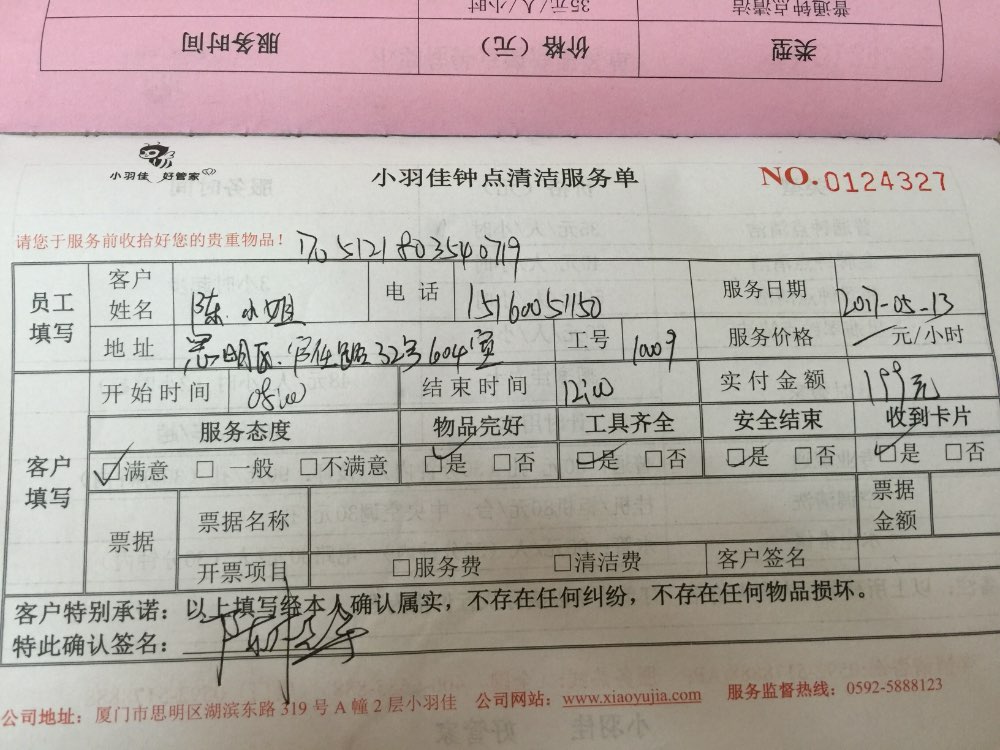 普通钟点清洁 35元/人/小时
类型 价格（元） 服务时间
小羽佳 好管家
小羽佳钟点清洁服务单 NO.0124327
请您于服务前收拾好您的贵重物品！
员工填写 客户姓名 陈小姐 电话 15160051150 服务日期 2017-05-13
地址 思明区 32号604室 工号 10009 服务价格 元/小时
客户填写 开始时间 08:00 结束时间 12:00 实付金额 199元
服务态度 物品完好 工具齐全 安全结束 收到卡片
☑满意 □一般 □不满意 ☑是 □否 ☑是 □否 ☑是 □否 ☑是 □否
票据 票据名称 票据金额
开票项目 □服务费 □清洁费 客户签名
客户特别承诺：以上填写经本人确认属实，不存在任何纠纷，不存在任何物品损坏。
特此确认签名：
公司地址：厦门市思明区湖滨东路319号A幢2层小羽佳 公司网站：www.xiaoyujia.com 服务监督热线：0592-5888123